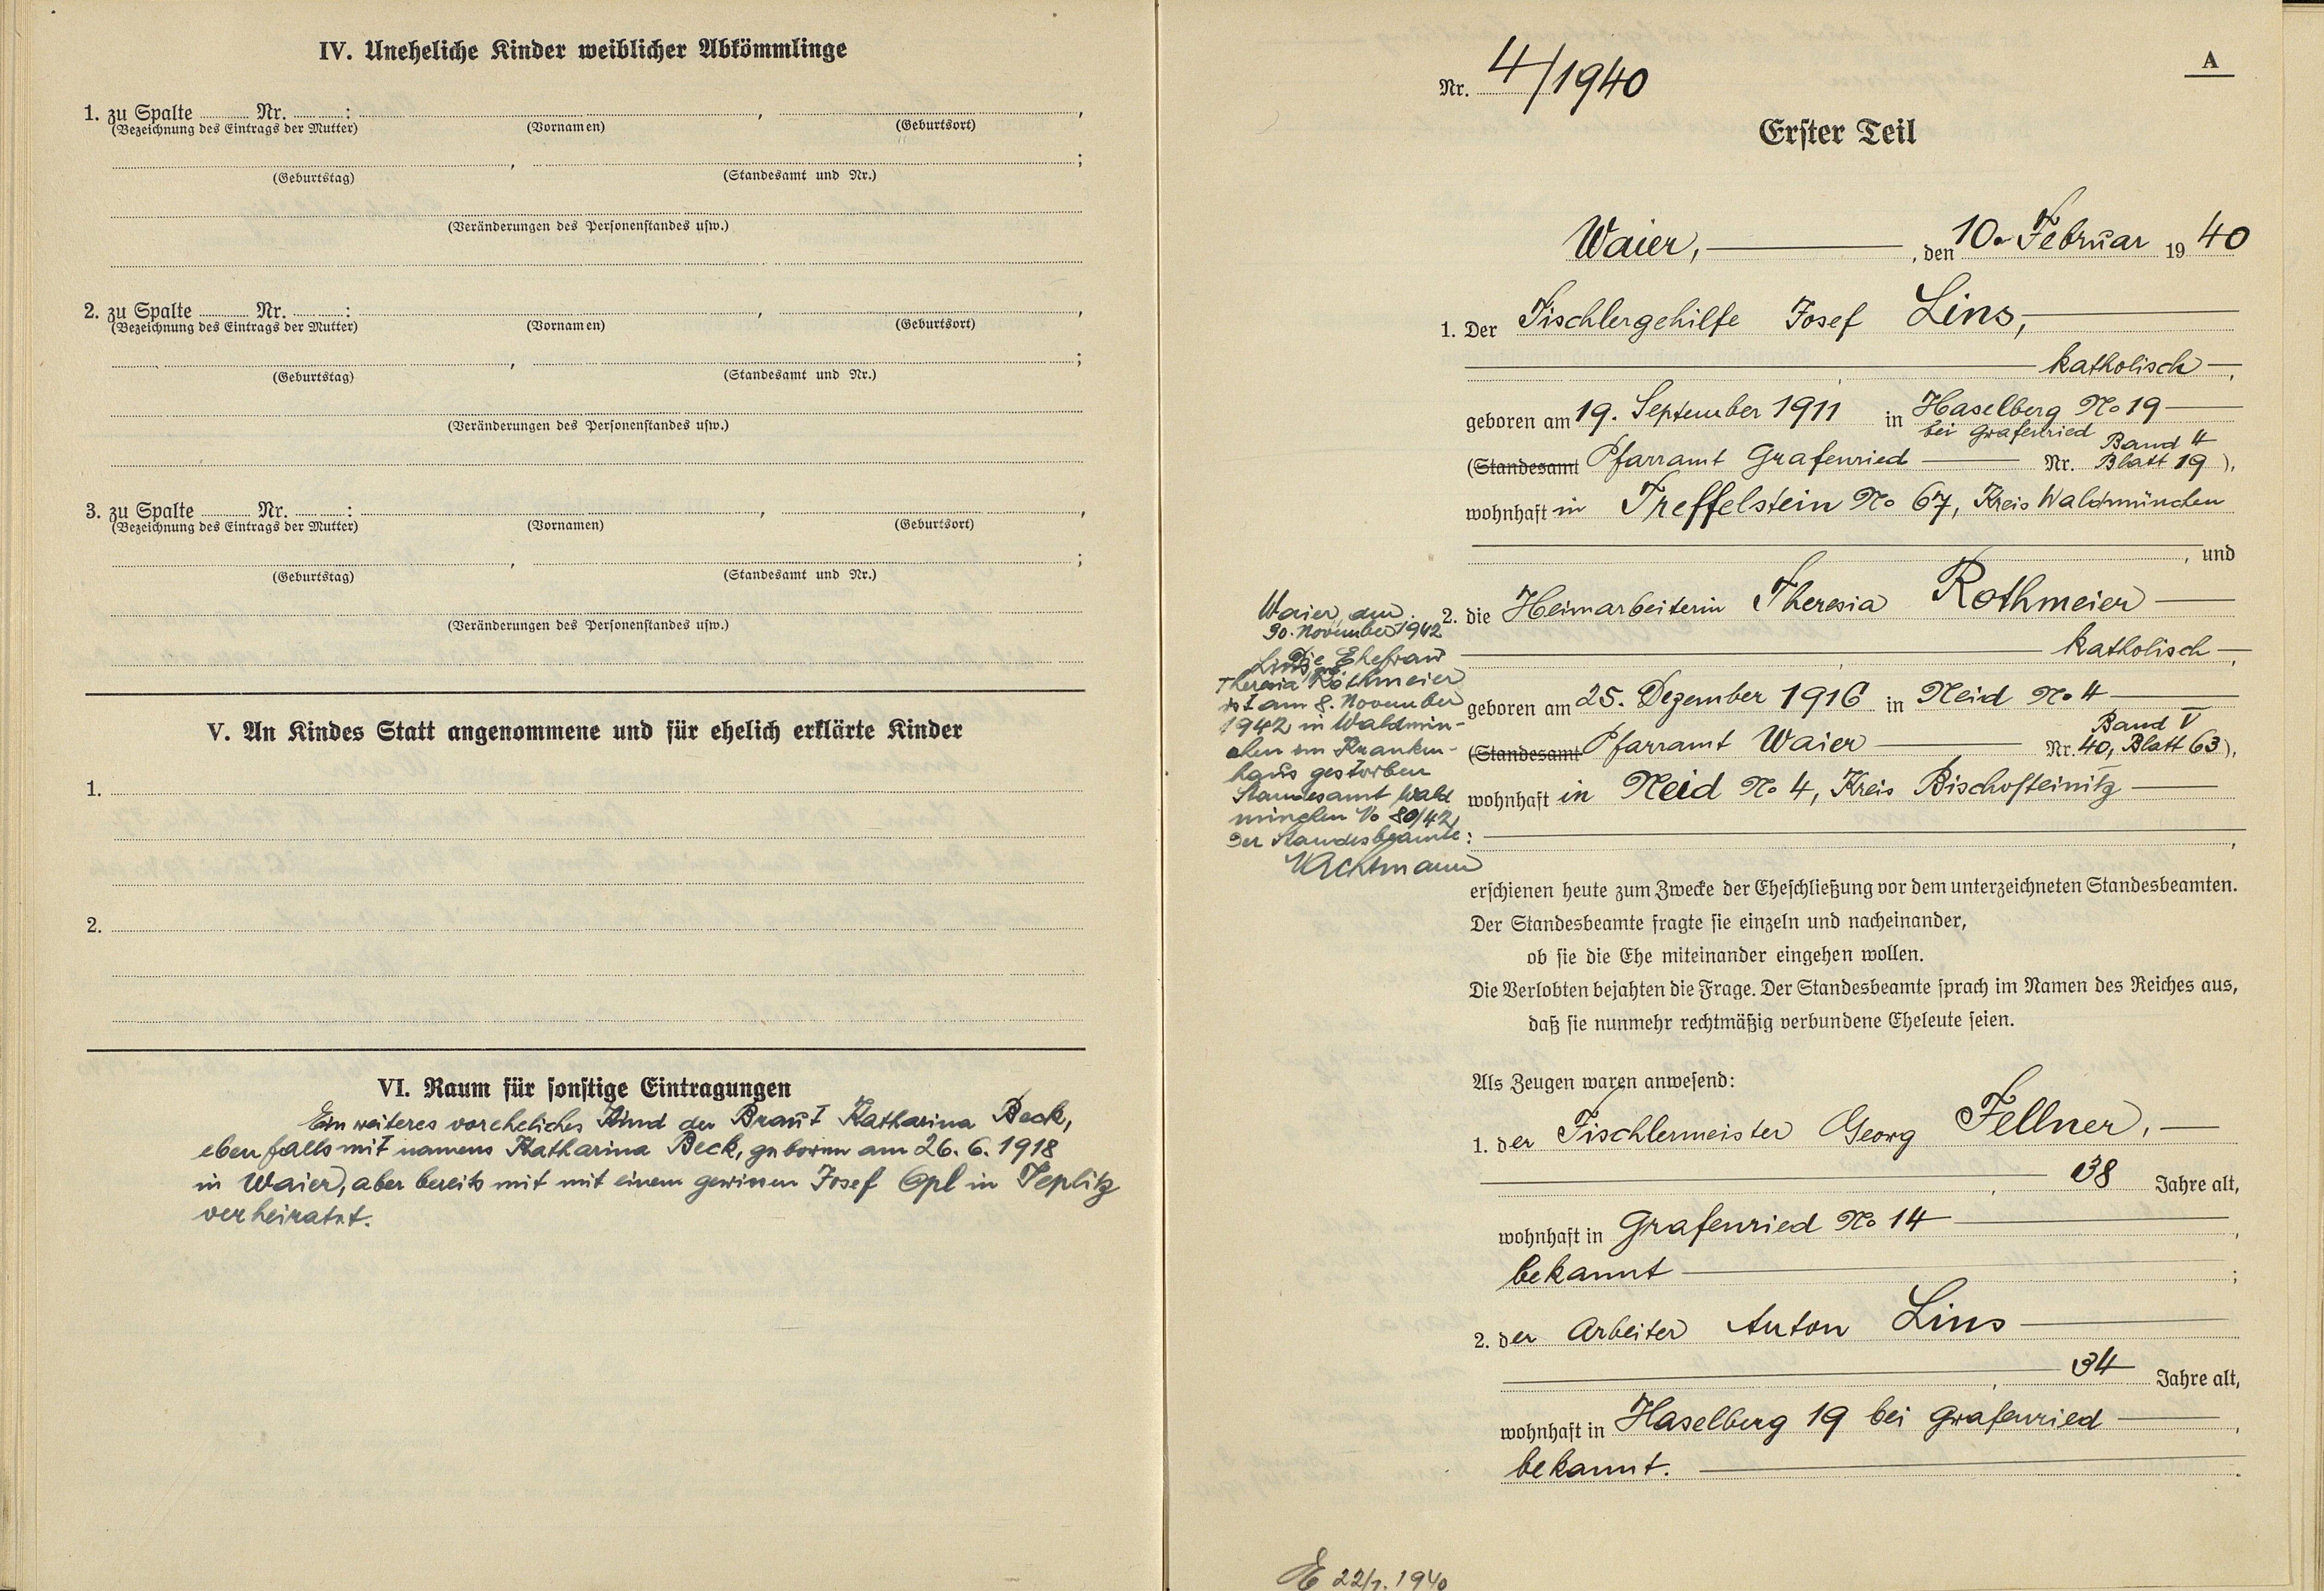 IV. Uneheliche Kinder weiblicher Abkömmlinge
1. zu Spalte ........ Nr. ........:
(Bezeichnung des Eintrags der Mutter) (Vornamen) (Geburtsort)
(Geburtstag) (Standesamt und Nr.)
(Veränderungen des Personenstandes usw.)
2. zu Spalte ........ Nr. ........:
(Bezeichnung des Eintrags der Mutter) (Vornamen) (Geburtsort)
(Geburtstag) (Standesamt und Nr.)
(Veränderungen des Personenstandes usw.)
3. zu Spalte ........ Nr. ........:
(Bezeichnung des Eintrags der Mutter) (Vornamen) (Geburtsort)
(Geburtstag) (Standesamt und Nr.)
(Veränderungen des Personenstandes usw.)
V. An Kindes Statt angenommene und für ehelich erklärte Kinder
1.
2.
VI. Raum für sonstige Eintragungen
Ein weiteres voreheliches Kind der Braut Katharina Beck,
ebenfalls mit namens Katharina Beck, geboren am 26. 6. 1918
in Waier, aber bereits mit mit einem gewissen Josef Opl in Teplitz
verheiratet.
A
Nr. 4/1940
Erster Teil
Waier, den 10. Februar 1940
1. Der Tischlergehilfe Josef Lins,
katholisch
geboren am 19. September 1911 in Haselberg No 19
bei Grafenried
(Standesamt Pfarramt Grafenried Nr. Band 4 Blatt 19),
wohnhaft in Treffelstein No 67, Kreis Waldmünchen
, und
2. die Heimarbeiterin Theresia Rothmeier
katholisch
geboren am 25. Dezember 1916 in Neid No 4
(Standesamt Pfarramt Waier Nr. 40, Band V Blatt 63),
wohnhaft in Neid No 4, Kreis Bischofteinitz
Waier, am
30. November 1942
Die Ehefrau
Lins geb
Theresia Rothmeier
ist am 8. November
1942 in Waldmün-
chen im Kranken-
haus gestorben
Standesamt Wald
münchen No 80/42
Der Standesbeamte:
erschienen heute zum Zwecke der Eheschließung vor dem unterzeichneten Standesbeamten.
Der Standesbeamte fragte sie einzeln und nacheinander,
ob sie die Ehe miteinander eingehen wollen.
Die Verlobten bejahten die Frage. Der Standesbeamte sprach im Namen des Reiches aus,
daß sie nunmehr rechtmäßig verbundene Eheleute seien.
Als Zeugen waren anwesend:
1. der Tischlermeister Georg Fellner,
38 Jahre alt,
wohnhaft in Grafenried No 14
bekannt
2. der Arbeiter Anton Lins
34 Jahre alt,
wohnhaft in Haselberg 19 bei Grafenried
bekannt.